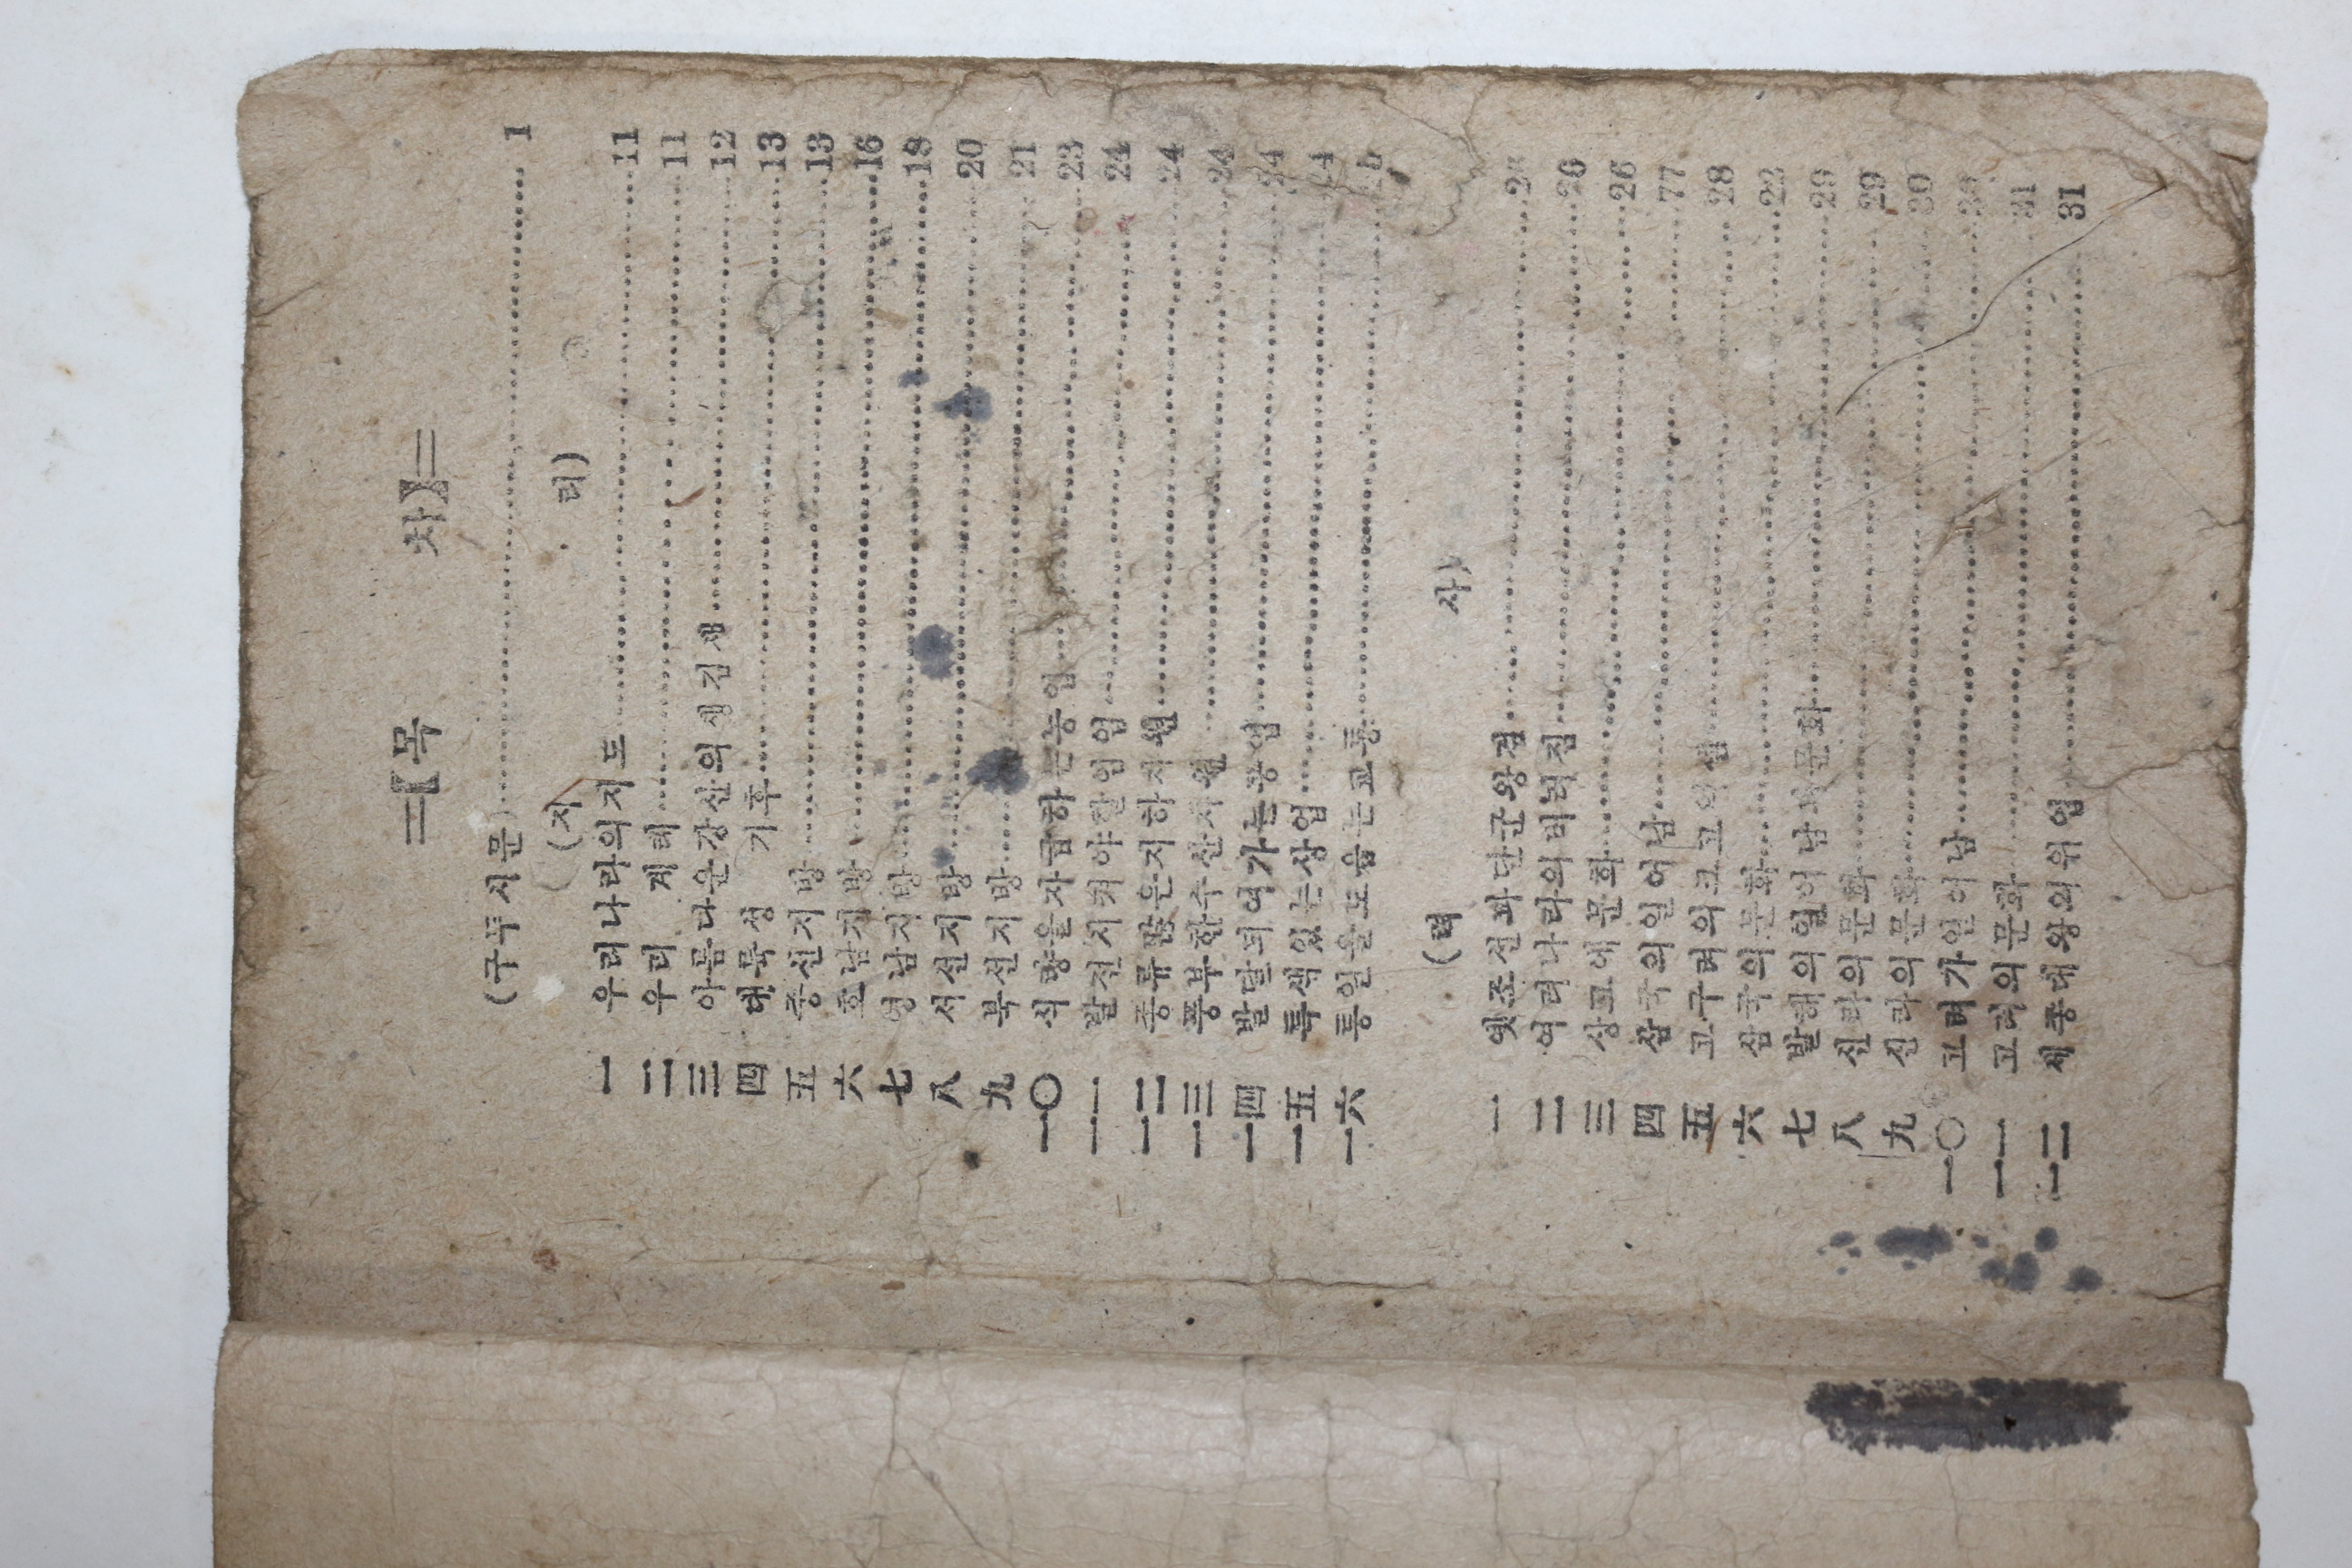 =【목 차】=
(구두시문)……1
(지 리)
一 우리나라의지도……11
二 우리 겨레……11
三 아름다운강산의생김새……12
四 대륙성 기후……13
五 중선지방……13
六 호남지방……16
七 영남지방……18
八 서선지방……20
九 북선지방……21
一〇 식량을자급하는농업……23
一一 발전시켜야할임업……24
一二 종류많은지하자원……24
一三 풍부한수산자원……24
一四 발달되여가는공업……24
一五 특색있는상업……24
一六 통일을도웁는교통……
(력 사)
一 옛조선과단군왕검……
二 여러나라의버러짐……26
三 상고에문화……26
四 삼국의일어남……77
五 고구려의크고……28
六 삼국의문화……
七 발해의일어남과문화……29
八 신라의문화……29
九 신라의문화……30
一〇 고려가일어남……
一一 고려의문화……31
一二 세종대왕의위업……31